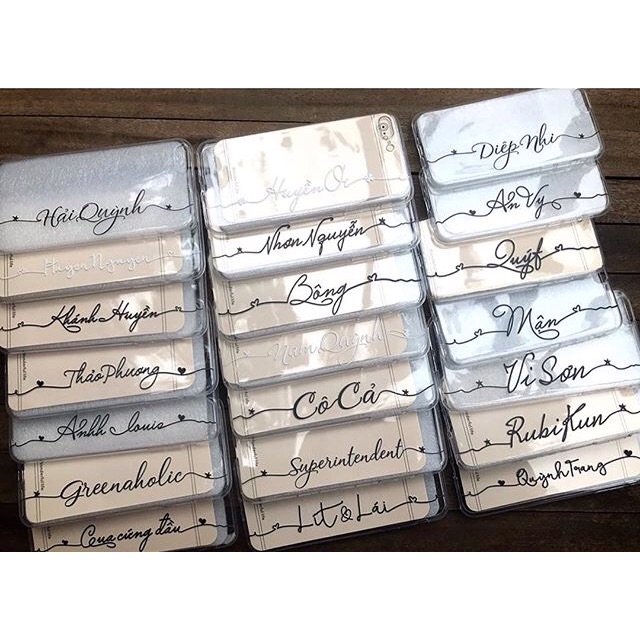 Hải Quỳnh
Huyen Nguyen
Khánh Huyền
Thảo Phương
Anhh louis
Greenaholic
Cua cứng đầu
Huyền Ơi
Nhơn Nguyễn
Bông
Nam Quỳnh
Cô Cả
Superintendent
Lít & Lái
Diệp Nhi
Ân Vy
Quýt
Mân
Vi Sơn
Rubi Kun
Quỳnh Trang